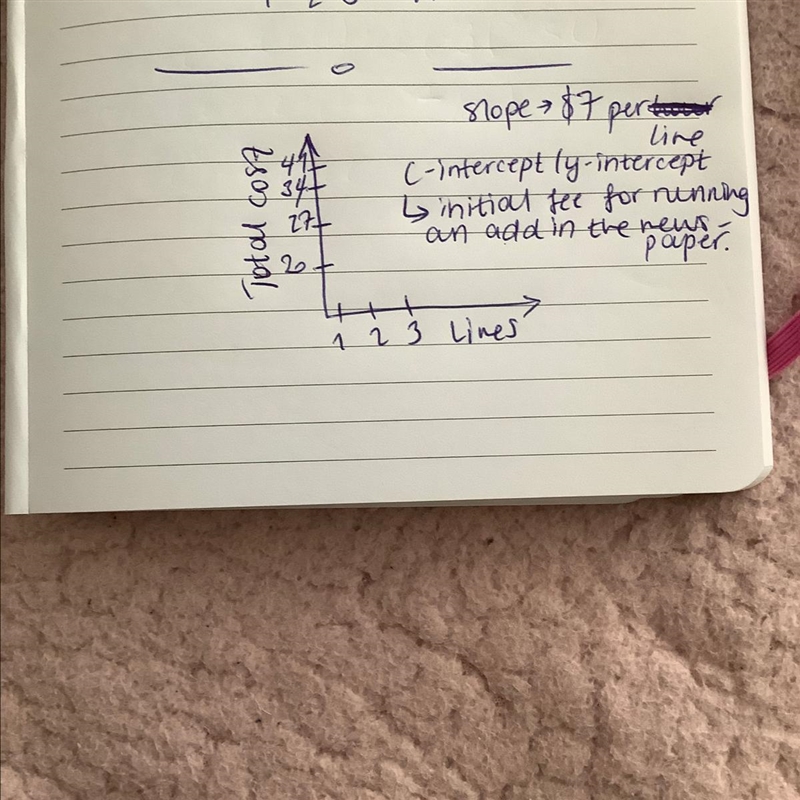 slope → $7 per
line
C-intercept / y-intercept
↳ initial fee for running
an add in the news-
paper.
Total cost
41
34
27
20
1 2 3 Lines